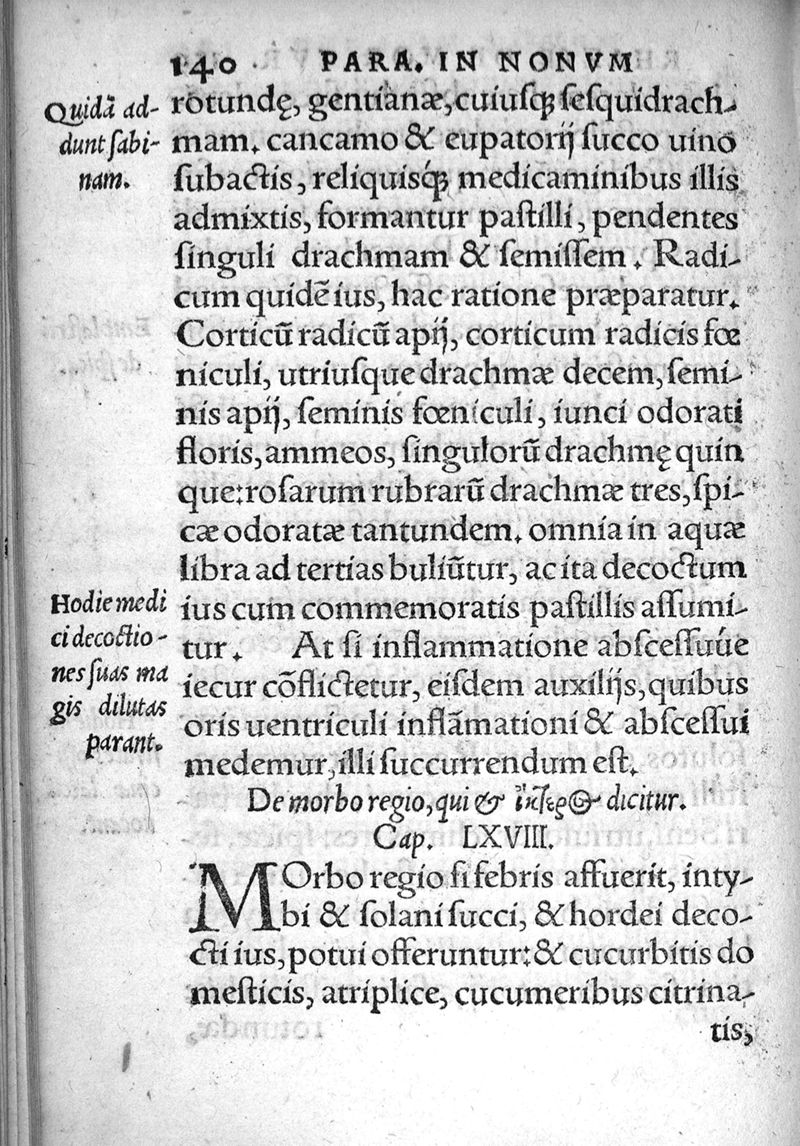 140 PARA. IN NONVM
Quidā ad-
dunt sabi-
nam.
rotundę, gentianæ, cuiusq́ꝫ sesquidrach-
mam. cancamo & eupatorij succo uino
subactis, reliquisq́ꝫ medicaminibus illis
admixtis, formantur pastilli, pendentes
singuli drachmam & semissem. Radi-
cum quidē ius, hac ratione præparatur.
Corticū radicū apij, corticum radicis fœ
niculi, utriusque drachmæ decem, semi-
nis apij, seminis fœniculi, iunci odorati
floris, ammeos, singulorū drachmę quin
que: rosarum rubrarū drachmæ tres, spi-
cæ odoratæ tantundem. omnia in aquæ
libra ad tertias buliūtur, ac ita decoctum
ius cum commemoratis pastillis assumi-
tur. At si inflammatione abscessuúe
iecur cōflictetur, eisdem auxilijs, quibus
oris uentriculi inflāmationi & abscessui
medemur, illi succurrendum est.
Hodie medi
ci decoctio-
nes suas ma
gis dilutas
parant.
De morbo regio, qui & ἴκτερος dicitur.
Cap. LXVIII.
MOrbo regio si febris affuerit, inty-
bi & solani succi, & hordei deco-
cti ius, potui offeruntur: & cucurbitis do
mesticis, atriplice, cucumeribus citrina-
tis,